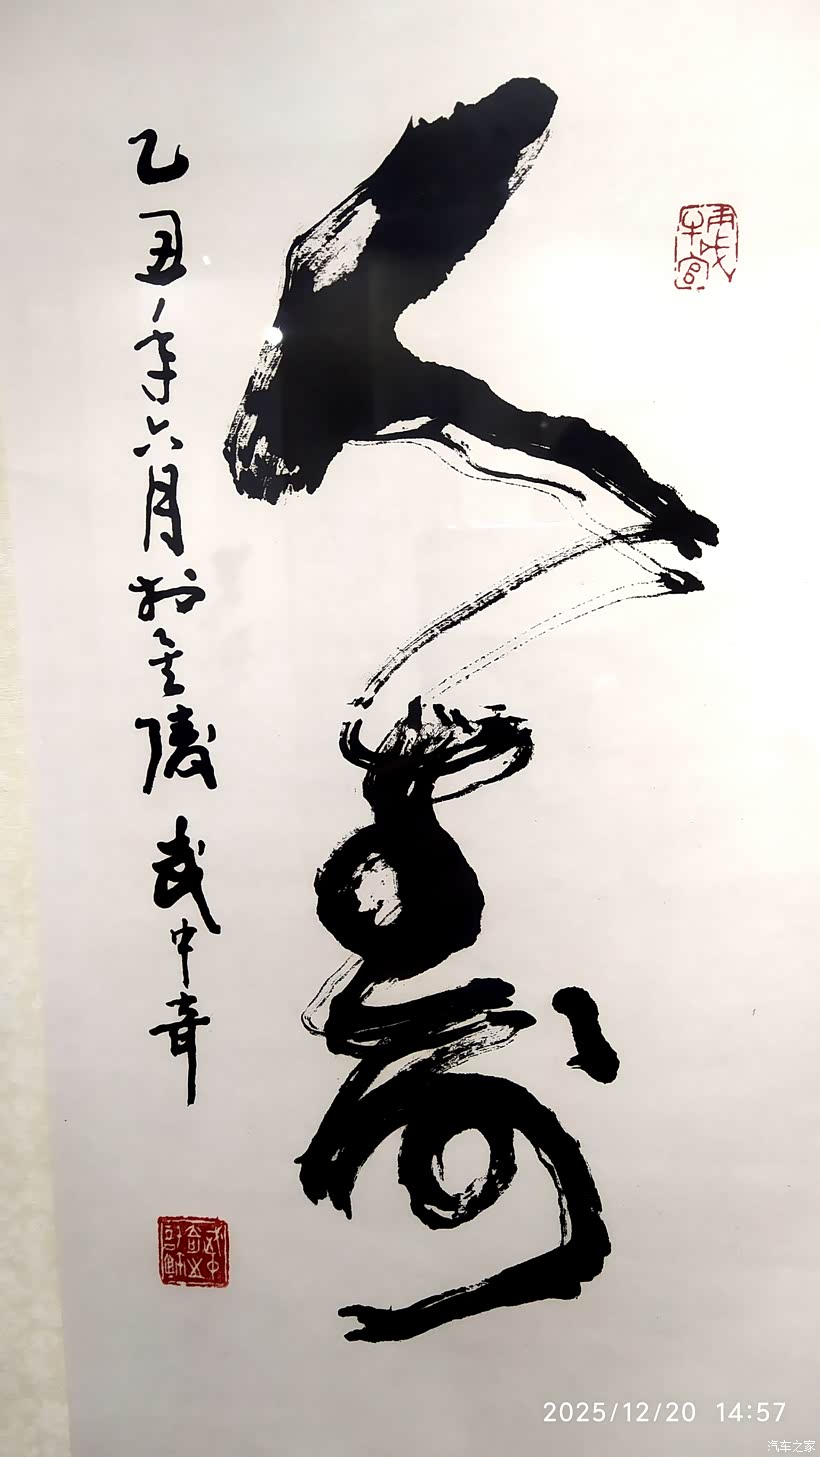 人寿
乙丑年六月於金陵 武中奇
2025/12/20 14:57
汽车之家